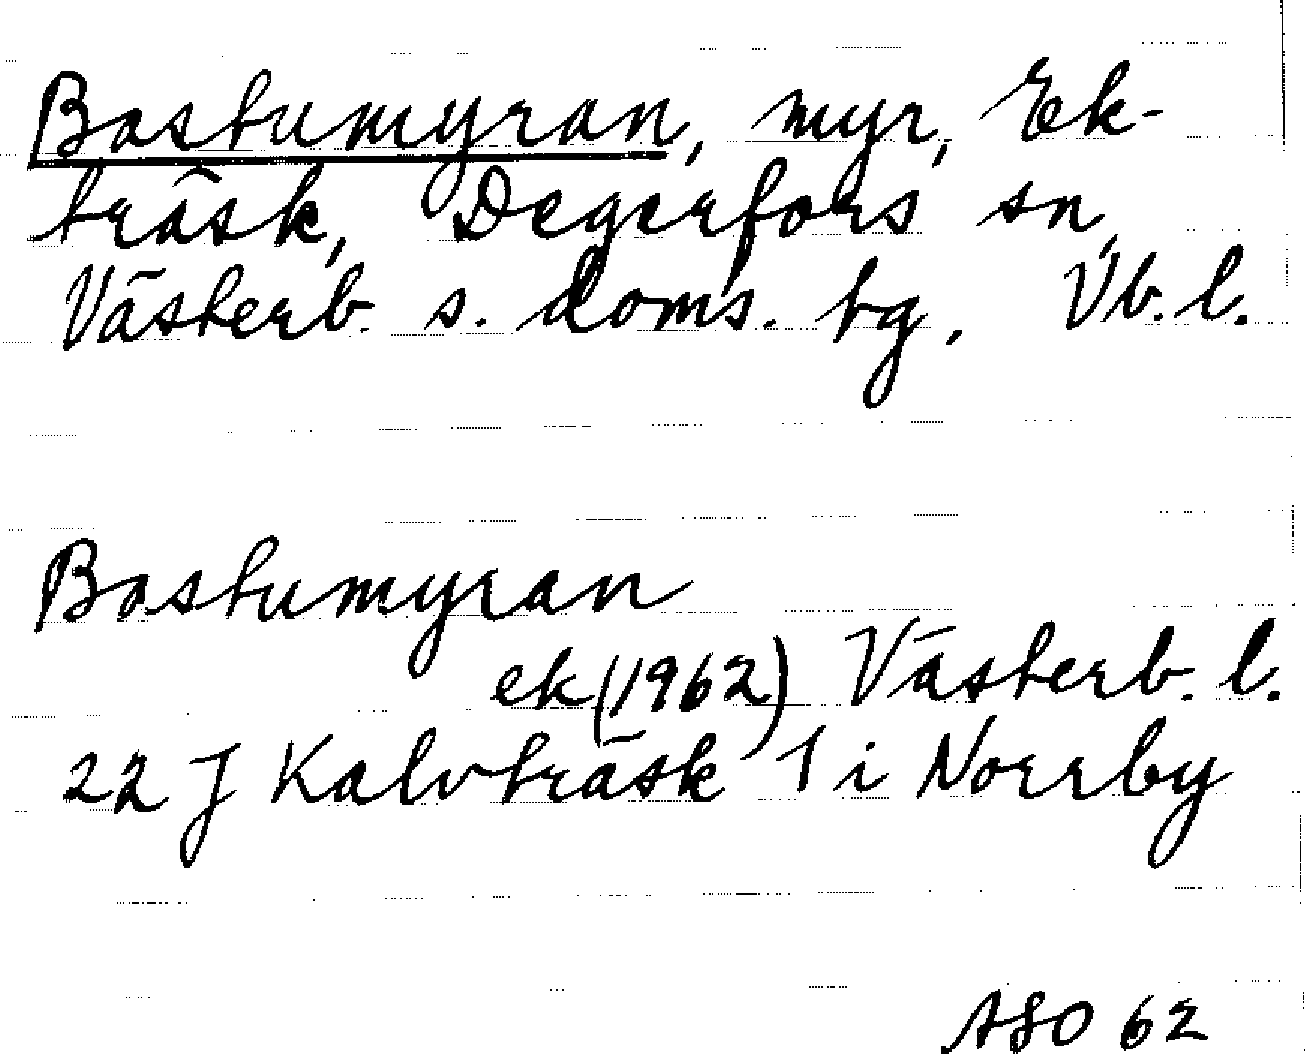 Bastumyran, myr, Ek-
träsk, Degerfors sn,
Västerb. s. doms. tg, Vb. l.
Bastumyran
ek (1962) Västerb. l.
22 J Kalvträsk 1 i Norrby
62